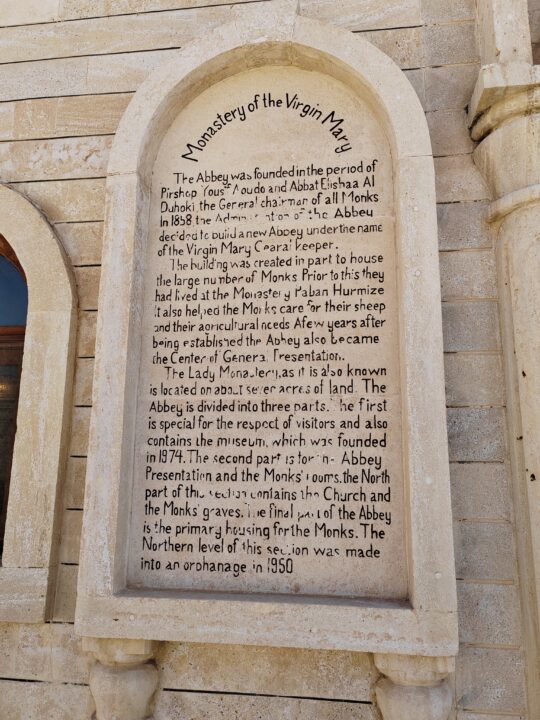 Monastery of the Virgin Mary
The Abbey was founded in the period of
Pirshop Yous Aoudo and Abbat Elishaa Al
Duhoki, the General chairman of all Monks
In 1858 the Administration of the Abbey
decided to build a new Abbey under the name
of the Virgin Mary keeper.
The building was created in part to house
the large number of Monks Prior to this they
had lived at the Monastery Raban Hurmize
It also helped the Monks care for their sheep
and their agricultural needs A few years after
being established the Abbey also became
the Center of General Presentation.
The Lady Monastery, as it is also known
is located on about seven acres of land. The
Abbey is divided into three parts. The first
is special for the respect of visitors and also
contains the museum, which was founded
in 1974. The second part is for Abbey
Presentation and the Monks' rooms, the North
part of this section contains the Church and
the Monks' graves. The final part of the Abbey
is the primary housing for the Monks. The
Northern level of this section was made
into an orphanage in 1950